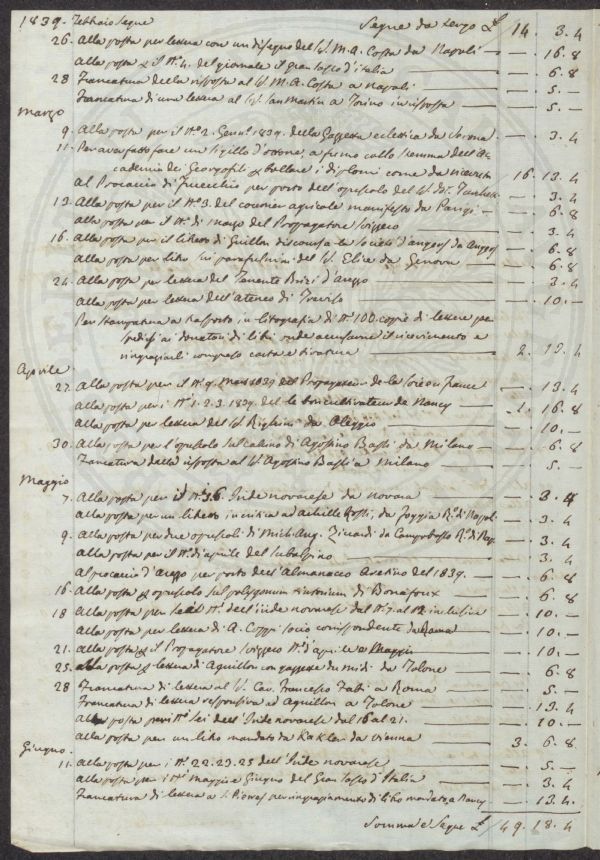 1839. Febbraio Segue Segue da tergo £ 14. 3. 4
26. Alla posta per lettera con un disegno del S. M. A. Costa da Napoli — . 16. 8
alla posta p il N°. 4. del giornale il gran sasso d'italia — . 6. 8
28 Francatura della risposta al S. M. A. Costa a Napoli — . 5. —
Francatura di una lettera al S. San Martin a Torino in risposta — . 5. —
Marzo
9. Alla posta per il N° 2. Genn° 1839. della Gazzetta eclettica da Verona — . 3. 4
11. Per aver fatto fare un sigillo d'ottone, a fumo collo stemma dell'Ac
cademia dei Georgofili p bollare i diplomi come da ricevuta 16. 13. 4
Al Procaccia di Fucecchio per porto dell'opuscolo del S. D. — . 3. 4
13. Alla posta per il N° 3. del courier agricole manifesto da Parigi — . 6. 8
alla posta per il N° di marzo del Propagatore svizzero — . 3. 4
16. Alla posta per il libretto di Guillon discours a la Societé d'angers da Angers — . 6. 8
alla posta per libro sui parafulmini del S. Elice da Genova — . 6. 8
24. Alla posta per lettera del Tenente Brizi d'Arezzo — . 3. 4
alla posta per lettera dell'ateneo di Treviso — . 10. —
Per stampatura a trasporto in litografia di N° 100. copie di lettere per
spedirsi ai donatori di libri onde accusarne il ricevimento e
ringraziarli compreso carta e tiratura 2. 13. 4
Aprile
27. Alla posta per il N° 9. Mars 1839 del Propagateur de la soie en France — . 13. 4
alla posta per i N° 1. 2. 3. 1839. del le bon cultivateur da Nancy 1. 16. 8
alla posta per lettera del S. Righini da Oleggio — . 10. —
30. Alla posta per l'opuscolo sul calcino di Agostino Bassi da Milano — . 6. 8
Francatura della risposta al S. Agostino Bassi a Milano — . 5. —
Maggio
7. Alla posta per il N° 16 Iride novarese da Novara — . 3. 4
alla posta per un libretto in critica ad Achille Rossi, da Foggia R.° di Napoli — . 3. 4
9. Alla posta per due opuscoli di Mich. Ang. Ziccardi da Campobasso R.° di Nap. — . 3. 4
alla posta per il N° d'aprile del subalpino — . 3. 4
Al procaccia d'Arezzo per porto dell'Almanacco Aretino del 1839. — . 6. 8
16. Alla posta p opuscolo sul polygonum tinctorium di Bonafoux — . 6. 8
18 Alla posta per sei N.i dell'iride novarese dal N° 7. al 12 inclusive — . 10. —
Alla posta per lettera di A. Coppi socio corrispondente da Roma — . 10. —
21. Alla posta p il Propagatore svizzero N.i d'aprile e Maggio — . 10. —
25. alla posta p lettera di Aguillon con gazzette du midi da Tolone — . 6. 8
28 Francatura di lettera al S. Cav. Francesco Fabi a Roma — . 5. —
Francatura di lettera responsiva ad Aguillon a Tolone — . 13. 4
alla posta per i N.i sei dell'Iride novarese dal 16 al 21. — . 10. —
alla posta per un libro mandato da Kakler da Vienna 3. 6. 8
Giugno
11. Alla posta per i N.i 22. 23. 25 dell'Iride novarese — . 5. —
alla posta per i N.i maggio e Giugno del Gran Sasso d'Italia — . 3. 4
Francatura di lettera a S. per ringraziamento di libro mandato, a Nancy — . 13. 4.
Somma e Segue £ 49. 18. 4